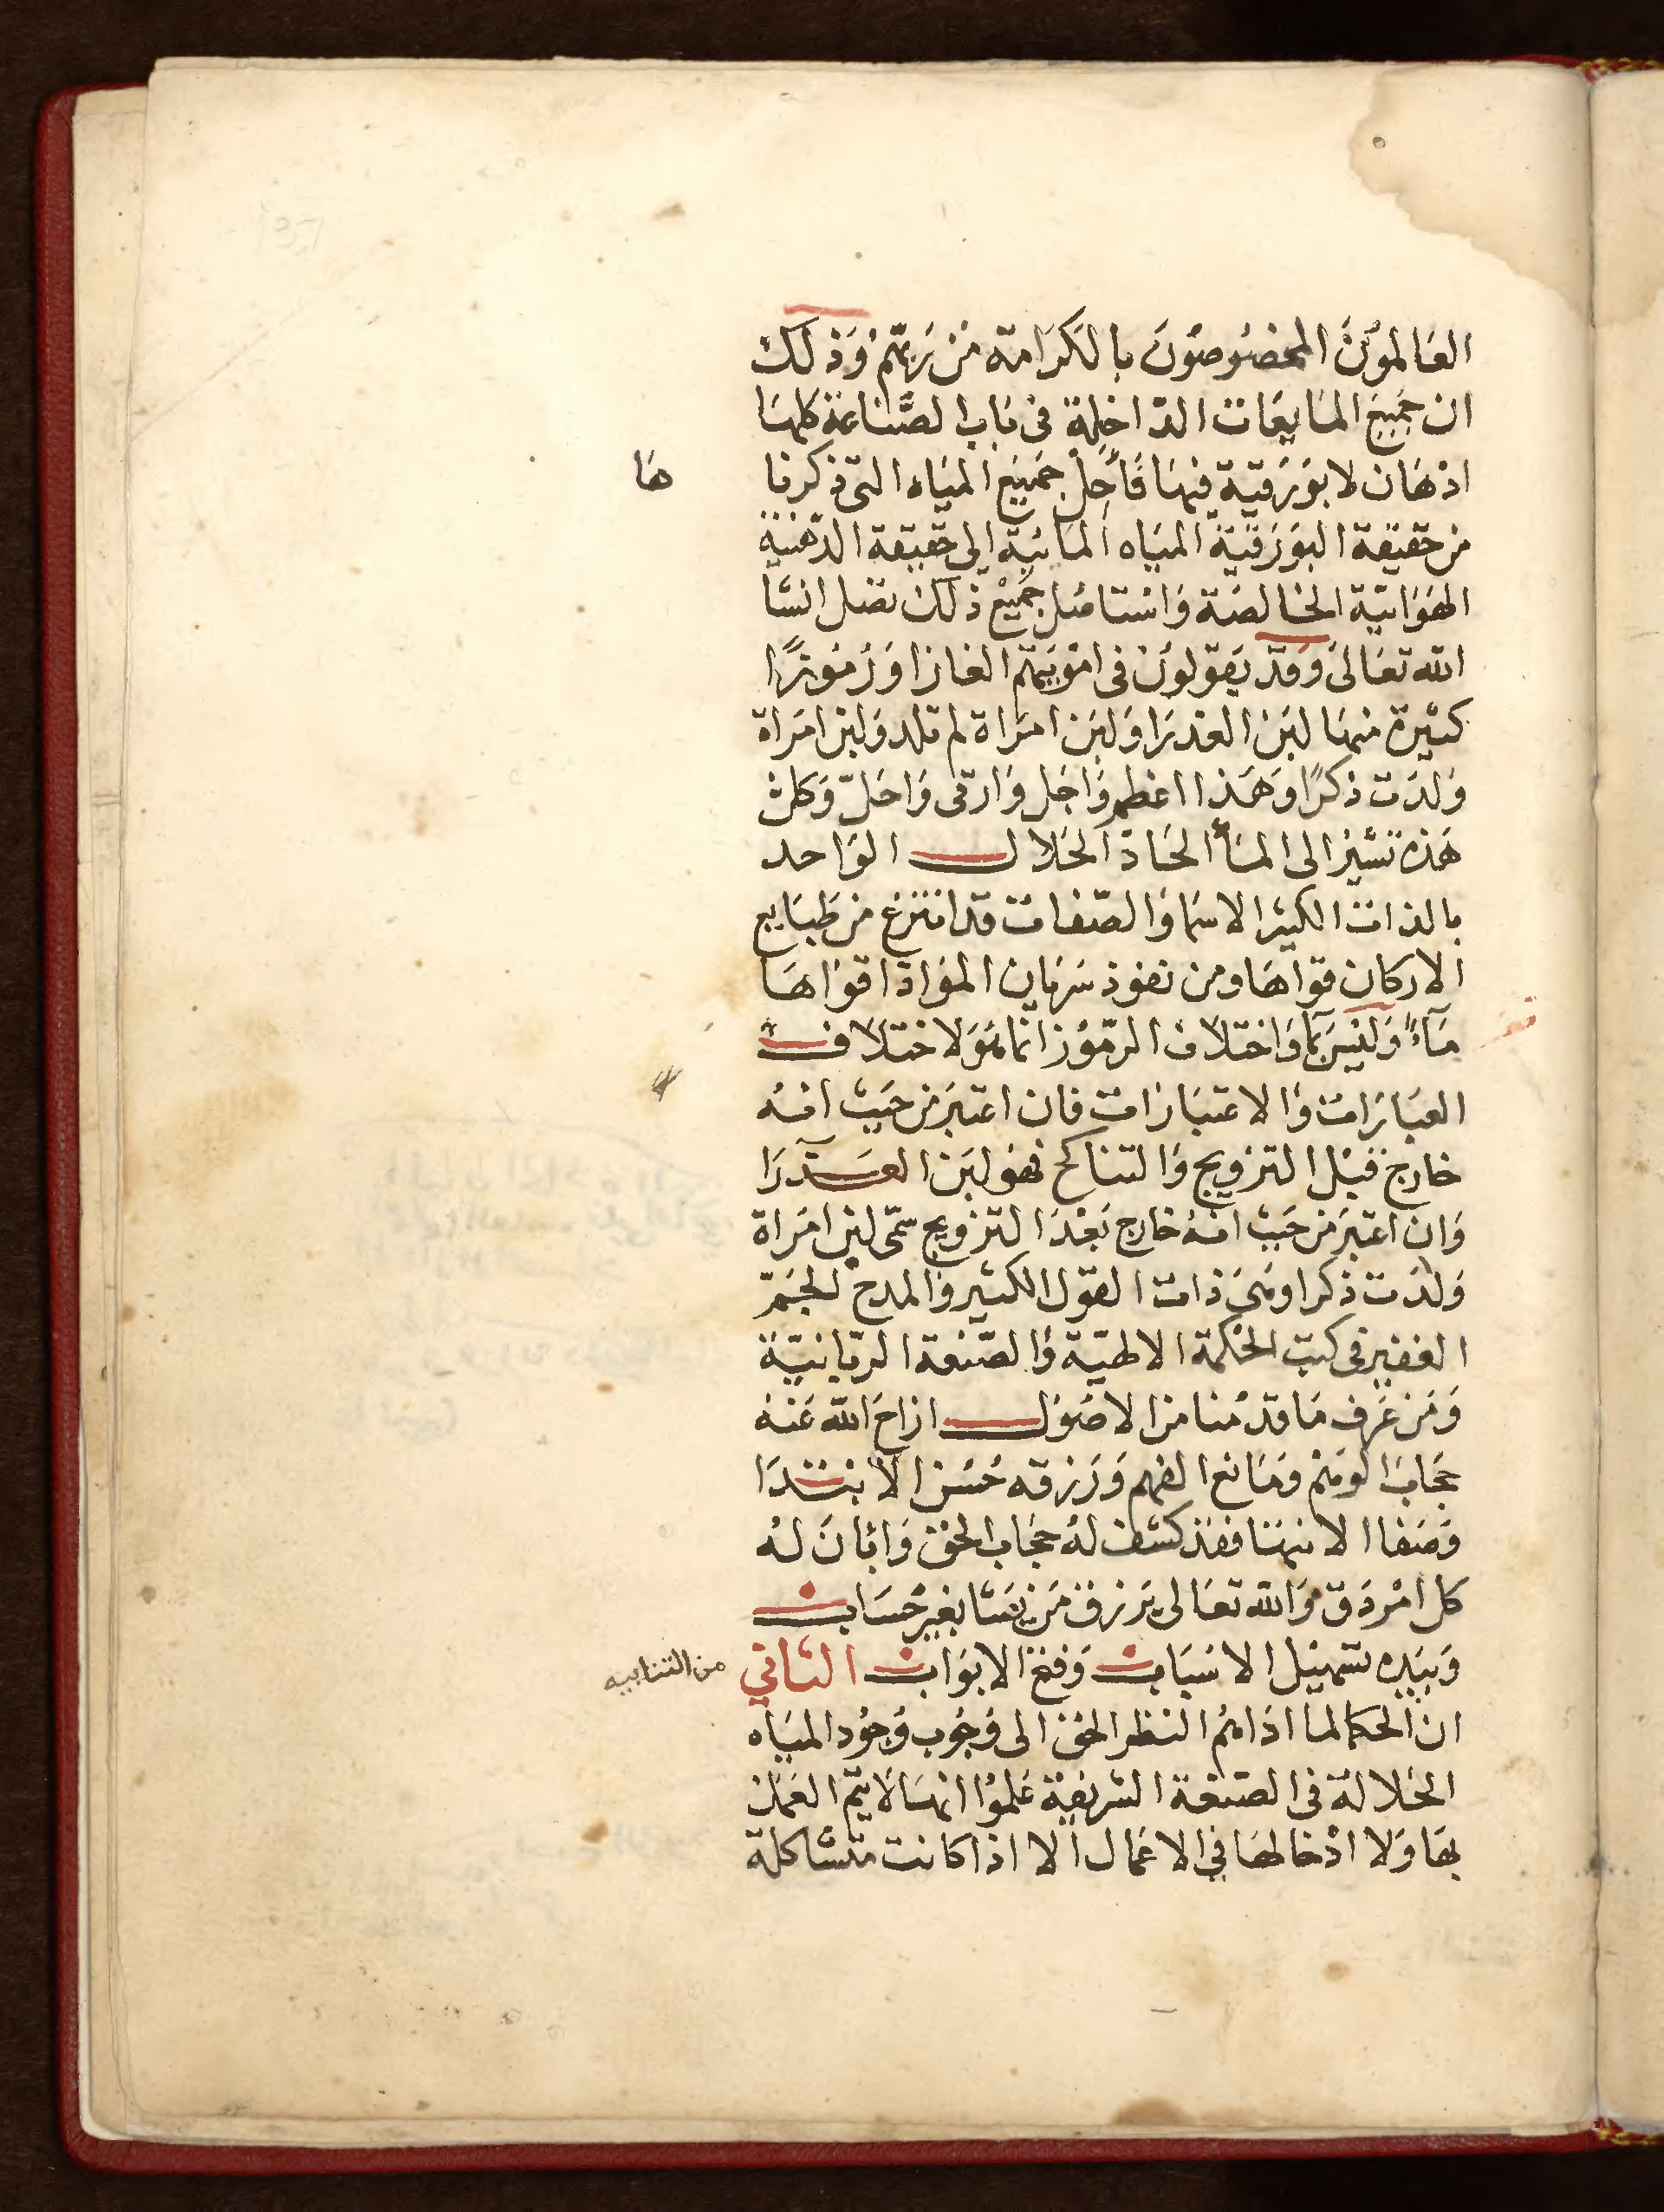 العَالموُنَ المخصُوصُونَ بالكَرَامة مْن رَبّهِمْ وَذلكَ
ان جَميِعَ المَايعَات الدّاخلِة فى بَاب الصّنَاعَة كلهَا
ادْهَان لا بَوْرَقيّة فيْهَا فَأَحِلْ جَميْع الميَاه التى ذكرنا هَا
من حَقيْقة البَوْرَقيّة الميَاه المَائيّة الى حَقيقة الدّهنيّة
الهَوَائيّة الخالصَة وَاسْتامْل جَمِيْع ذلك تصل انشَا
الله تعَالى وَقدْ يَقولوُن فى امْوَيَهم الغازا وَرُمُوْزًا
كثيْرة منهَا لبَن العذرَا وَلبَن امرَاة لم تلد وَلبن امَراة
وَلدَت ذكرًا وَهَذا اعْظم وَاجَل وَارقى وَاحَلّ وَكلْ
هَذه تشيْر الى المَأ الحَادّ الحَلال الوَاحد
بالذات الكثير الاسمَا وَالصّفات قد انتزع من طَبَايع
الاركان قوَاهَا ومن نفوذ سَرَيان الموَادّ اقوَاهَا
مَآءً وَليْسَ بمَا وَاختلاف الرّمُوْز انمَا هُوَ لاختلاف
العبَارَات وَالاعتبَارَات فان اعتبرَ من حَيث انهُ
خارج قبْل التزويج وَالتناكح فهَو لبَن العَذرَا
وَان اعتبرَ من حَيث انهُ خارج بَعْدَ التزويج سمّى لبن امرَاة
وَلدَت ذكرا وهَى ذات القوْل الكثير وَالمدح الجَمّ
الغفير فى كتب الحْكمة الالهيّة وَالصّنعة الرّبانيّة
وَمَن عَرَف مَا قدمْنا من الاصُوْل ازاحَ الله عَنْه
حجَابَ الوَهْم وَمَانع الفهم وَرَزقه حُسْن الابتدَا
وَصَفا الانتهَا فقد كشف لهُ حجَاب الحق وَابَانَ لهُ
كل امْر دَقّ وَالله تعَالى يَرزق مَن يَشَا بغير حسَاب
وَبيَده تسهيْل الاسْبَاب وَفتح الابوَاب الثاني من التنابيه
ان الحكما لما ادَاهُم النظر الحق الى وُجُوب وُجُود الميَاه
الحَلالة فى الصّنعة الشريفة عَلموُا انهَا لا يَتم العَمَل
بهَا وَلا ادْخالهَا فى الاعَمال الا اذا كانت متشاكلة